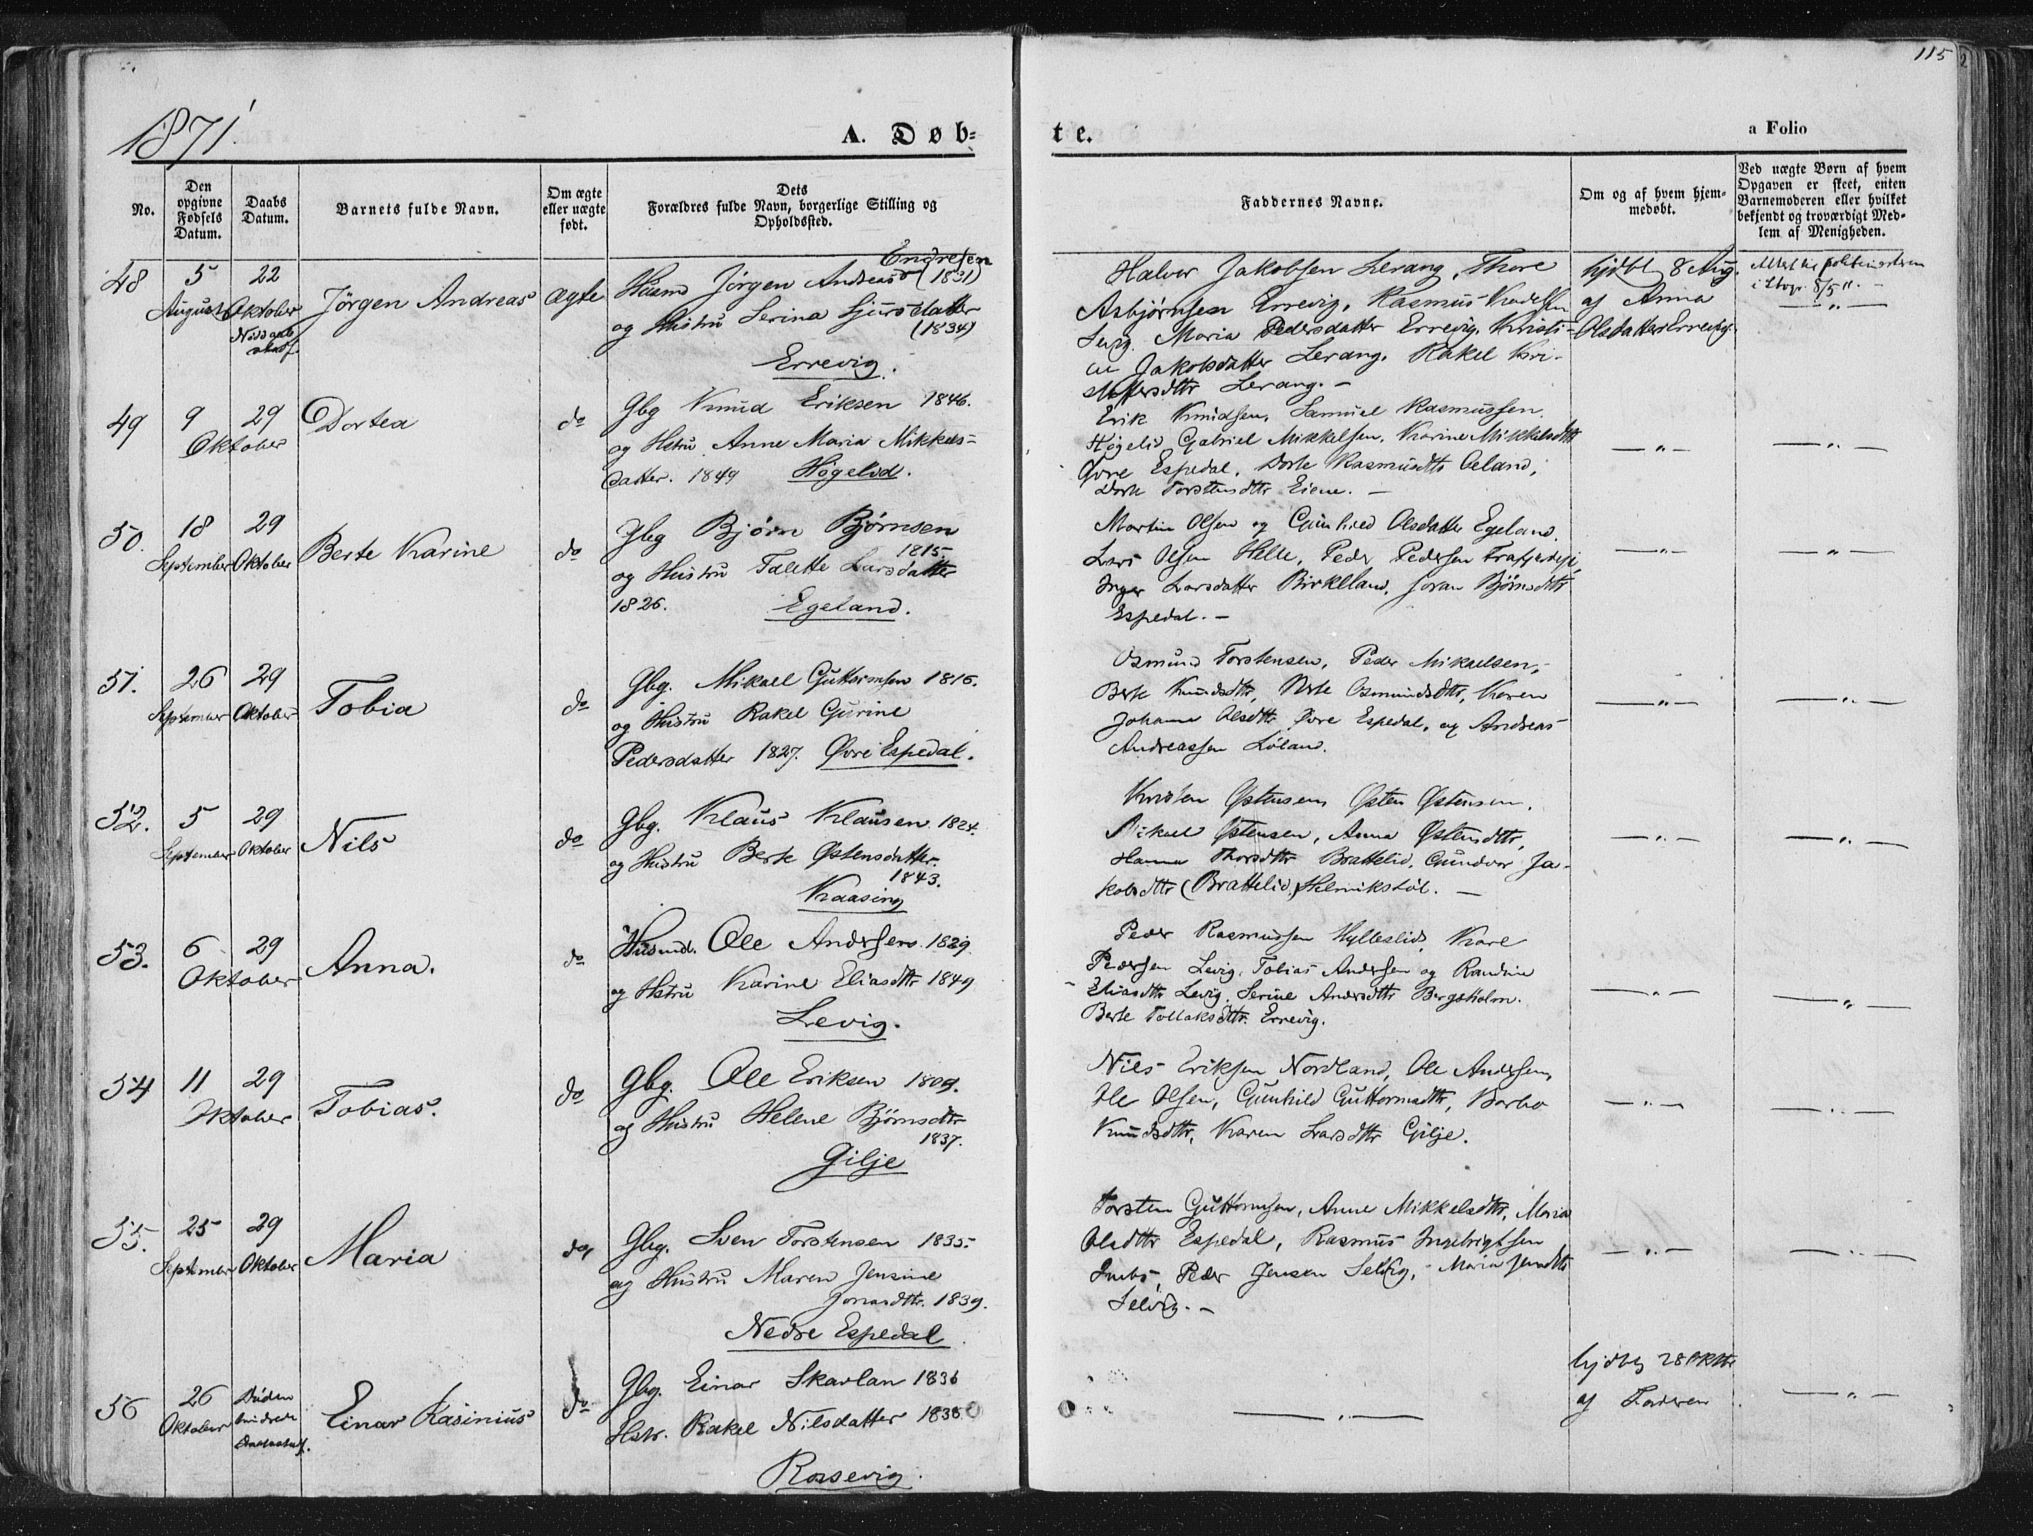 115
1871.
A. Døb-
te.
a Folio
No.
Den opgivne Fødsels Datum.
Daabs Datum.
Barnets fulde Navn.
Om ægte eller uægte født.
Dets Forældres fulde Navn, borgerlige Stilling og Opholdssted.
Faddernes Navne.
Om og af hvem hjemmedøbt.
Ved uægte Børn af hvem Opgaven er skeet, enten Barnemoderen eller hvilket bekjendt og troværdigt Medlem af Menigheden.
48
5 August
22 Oktober
Jörgen Andreas
ægte
Endresen
Husmd Jörgen Andreas (1831)
og Hustru Serina Sjursdatter
(1834)
Errevig.
Halvor Jakobsen Lerang, Thore
Asbjørnsen Errevig, Rasmus
Maria Pedersdatter Errevig, Kristi-
ne Jakobsdatter Lerang. Rakel Kri-
stoffersdttr Lerang. -
hjdbt 8 Aug.
af Anna
Olsdatter Errevig
49
9 Oktober
29
Dortea
do
Gbg Knud Eriksen 1846.
og Hstru Anne Maria Mikkels-
datter. 1849 Högelid.
Erik Knudsen, Samuel Rasmussen
Högelid Gabriel Mikkelsen, Karine Mikkelsdttr
Øvre Espedal, Dorte Rasmusdttr
Dorte Torstensdttr Eiene. -
— " —
— " —
50.
18 September
29 Oktober
Berte Karine
do
Gbg Bjørn Bjørnsen
1815.
og Hustru Talette Larsdatter
1826. Egeland.
Martin Olsen og Gunhild Olsdatter Egeland.
Lars Olsen Helle, Peder Pedersen
Inger Larsdatter Birkeland, Joran Bjørnsdttr
Espedal. -
— " —
— " —
51.
26 September
29 Oktober
Tobia
do
Gbg. Mikael Guttormsen 1816.
og Hustru Rakel Gurine
Pedersdatter 1827. Øvre Espedal.
Osmund Torstensen, Peder Mikaelsen,
Berte Knudsdttr, Berte Osmundsdttr, Karen
Johanna Olsdttr Øvre Espedal, og Andreas
Andreassen Løland.
— " —
— " —
52.
5 September
29 Oktober
Nils
do
Gbg. Klaus Klausen 1824.
og Hustru Berte Østensdatter.
1843.
Kaasing
Kristen Østensen, Østen Østensen,
Mikael Østensen, Anna Østensdttr,
Hanna Thorsdttr Brattelid, Gundvor Ja-
kobsdttr (Brattelid) Helmikstøl. -
— " —
— " —
53.
6 Oktober
29
Anna.
do
Husmd. Ole Andersen 1829.
og Hstru Karine Eliasdttr 1849
Levig.
Peder Rasmussen Hylleslid, Kare
Pedersen Levig, Tobias Andersen og
Eliasdttr Levig, Serine Andersdttr Bergsholm.
Berte Tollaksdttr Errevig.
— " —
— " —
54
11 Oktober
29
Tobias.
do
Gbg. Ole Eriksen 1809.
og Hustru Helene Bjørnsdttr
1837.
Gilje
Nils Eriksen Nordland, Ole Andersen,
Ole Olsen, Gunhild Guttormsdttr, Barbo
Knudsdttr, Karen Larsdttr Gilje.
— " —
— " —
55.
25 September
29 Oktober
Maria
do,
Gbg. Sven Torstensen 1835.
og Hustru Maren Jensine
Jonasdttr. 1839.
Nedre Espedal
Torsten Guttormsen, Anne Mikkelsdttr, Maria
Olsdttr Espedal, Rasmus Ingebrigtsen
Peder Jensen Selvig, Maria Jensdttr
Selvig. -
— " —
— " —
56
26 Oktober
Einar Kasinius
do
Gbg. Einar Skavlan 1836
Hstr. Rakel Nilsdatter 1838
Rossevig.
— " —
hjdbt 28 Oktbr
af Faderen
— " —